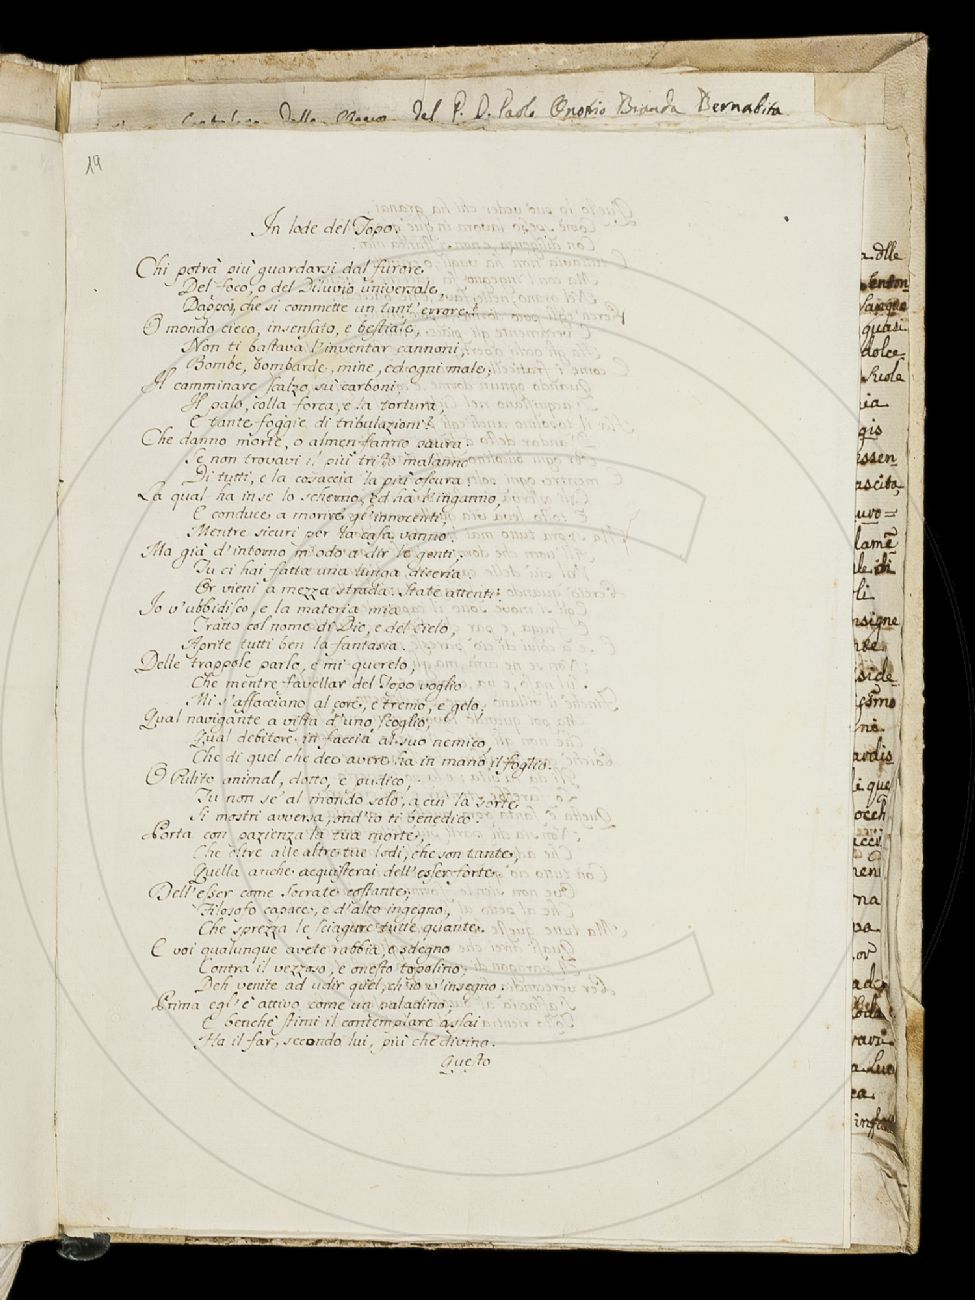 del P. D. Paolo Onofrio Branda Bernabita
19
In lode del Topo.
Chi potrà più guardarsi dal furore
Del foco, o del Diluvio universale,
Dappoi, che si commette un tant' errore?
O mondo cieco, insensato, e bestiale,
Non ti bastava l'inventar cannoni,
Bombe, bombarde, mine, ed ogni male;
Il camminare scalzo sui carboni,
Il palo, colla forca, e la tortura,
E tante foggie di tribulazioni?
Che danno morte, o almen fanno paura
Se non trovavi il più tristo malanno
Di tutti, e la cosaccia la più oscura
La qual ha in se lo scherno, ed ha l'inganno,
E conduce a morire gl'innocenti,
Mentre sicuri per la casa vanno.
Ma già d'intorno m'odo a dir le genti,
Tu ci hai fatta una lunga diceria
Or vieni a mezza strada: State attenti:
Io v'ubbidisco, e la materia mia
Tratto col nome di Dio, e del Cielo,
Aprite tutti ben la fantasia.
Delle trappole parlo, e mi querelo,
Che mentre favellar del Topo voglio
Mi s'affacciano al core, e tremo, e gelo,
Qual navigante a vista d'uno scoglio,
Qual debitore in faccia al suo nemico,
Che di quel che deo avere ha in mano il foglio.
O Pulito animal, dotto, e pudico,
Tu non se' al mondo solo, a cui la sorte
Si mostri avversa, ond'io ti benedico.
Porta con pazienza la tua morte,
Che oltre alle altre tue lodi, che son tante,
Quella anche acquisterai dell'esser forte.
Dell'esser come Socrate costante,
Filosofo capace, e d'alto ingegno,
Che sprezza le sciagure tutte quante.
E voi qualunque avete rabbia, e sdegno
Contra il vezzoso, e onesto topolino,
Deh venite ad udir quel, ch'io v'insegno.
Prima egl'è attivo come un paladino,
E benchè stimi il contemplare assai
Ha il far, secondo lui, più che divino.
Questo